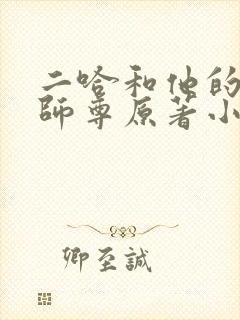 二哈和他的
師尊原著小
卿至誠